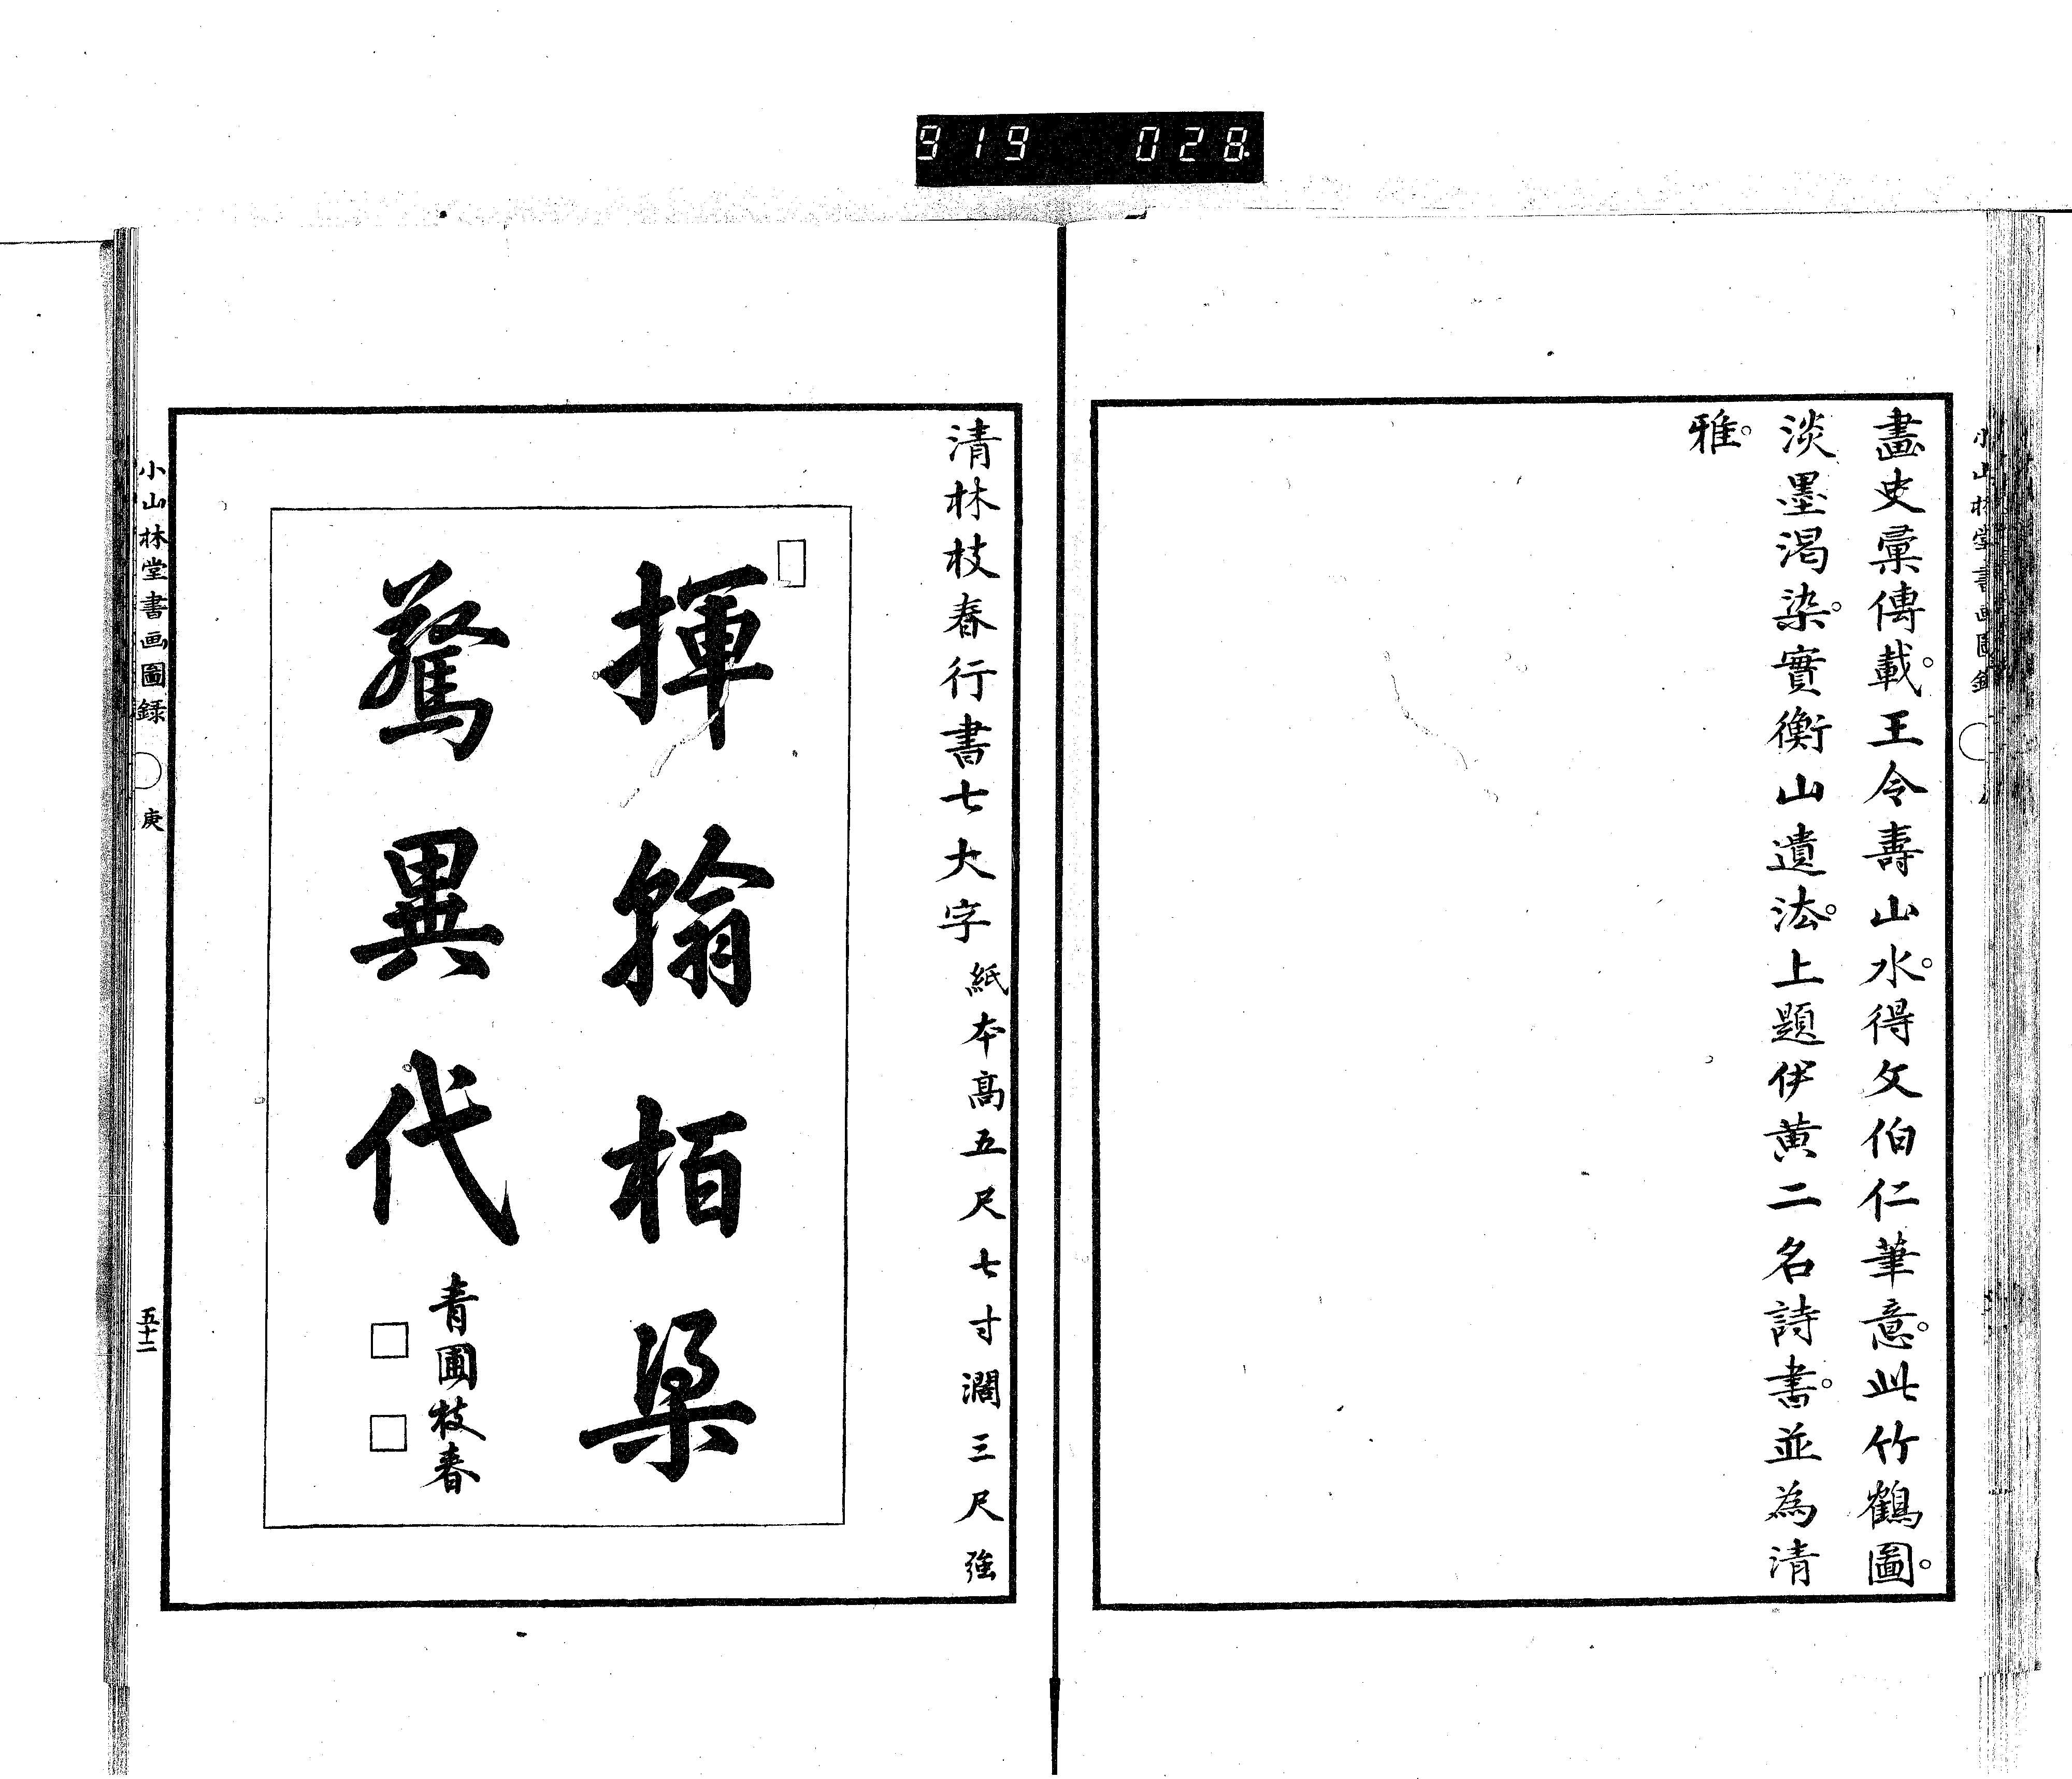 919 028
畫史彙傳載。王令壽山水。得文伯仁筆意。此竹鶴圖。
淡墨渴染。實衡山遺法。上題伊黄二名詩書。並為清
雅。
清林枝春行書七大字 紙本高五尺七寸濶三尺強
揮翰栢梁
驚異代
青圃枝春
小山林堂書画圖録 庚 五十二